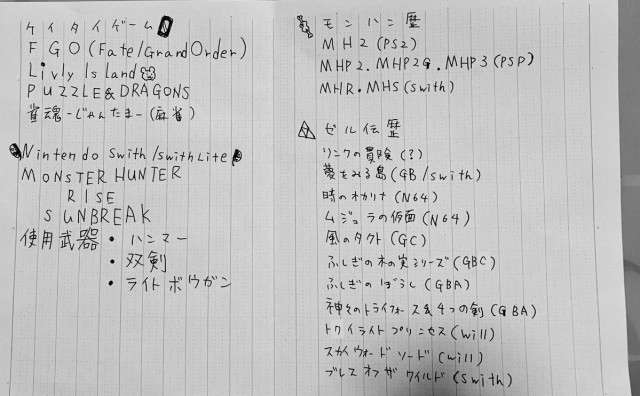 ケイタイゲーム
FGO(Fate/GrandOrder)
Livly Island
PUZZLE&DRAGONS
雀魂-じゃんたま-(麻雀)
Nintendo Swith/SwithLite
MONSTER HUNTER
RISE
SUNBREAK
使用武器・ハンマー
・双剣
・ライトボウガン
モンハン歴
MH2(PS2)
MHP2.MHP2G.MHP3(PSP)
MHR・MHS(Swith)
ゼル伝歴
リンクの冒険(?)
夢をみる島(GB/Swith)
時のオカリナ(N64)
ムジュラの仮面(N64)
風のタクト(GC)
ふしぎの木の実シリーズ(GBC)
ふしぎのぼうし(GBA)
神々のトライフォース&4つの剣(GBA)
トワイライトプリンセス(Will)
スカイウォードソード(Will)
ブレスオブザワイルド(Swith)